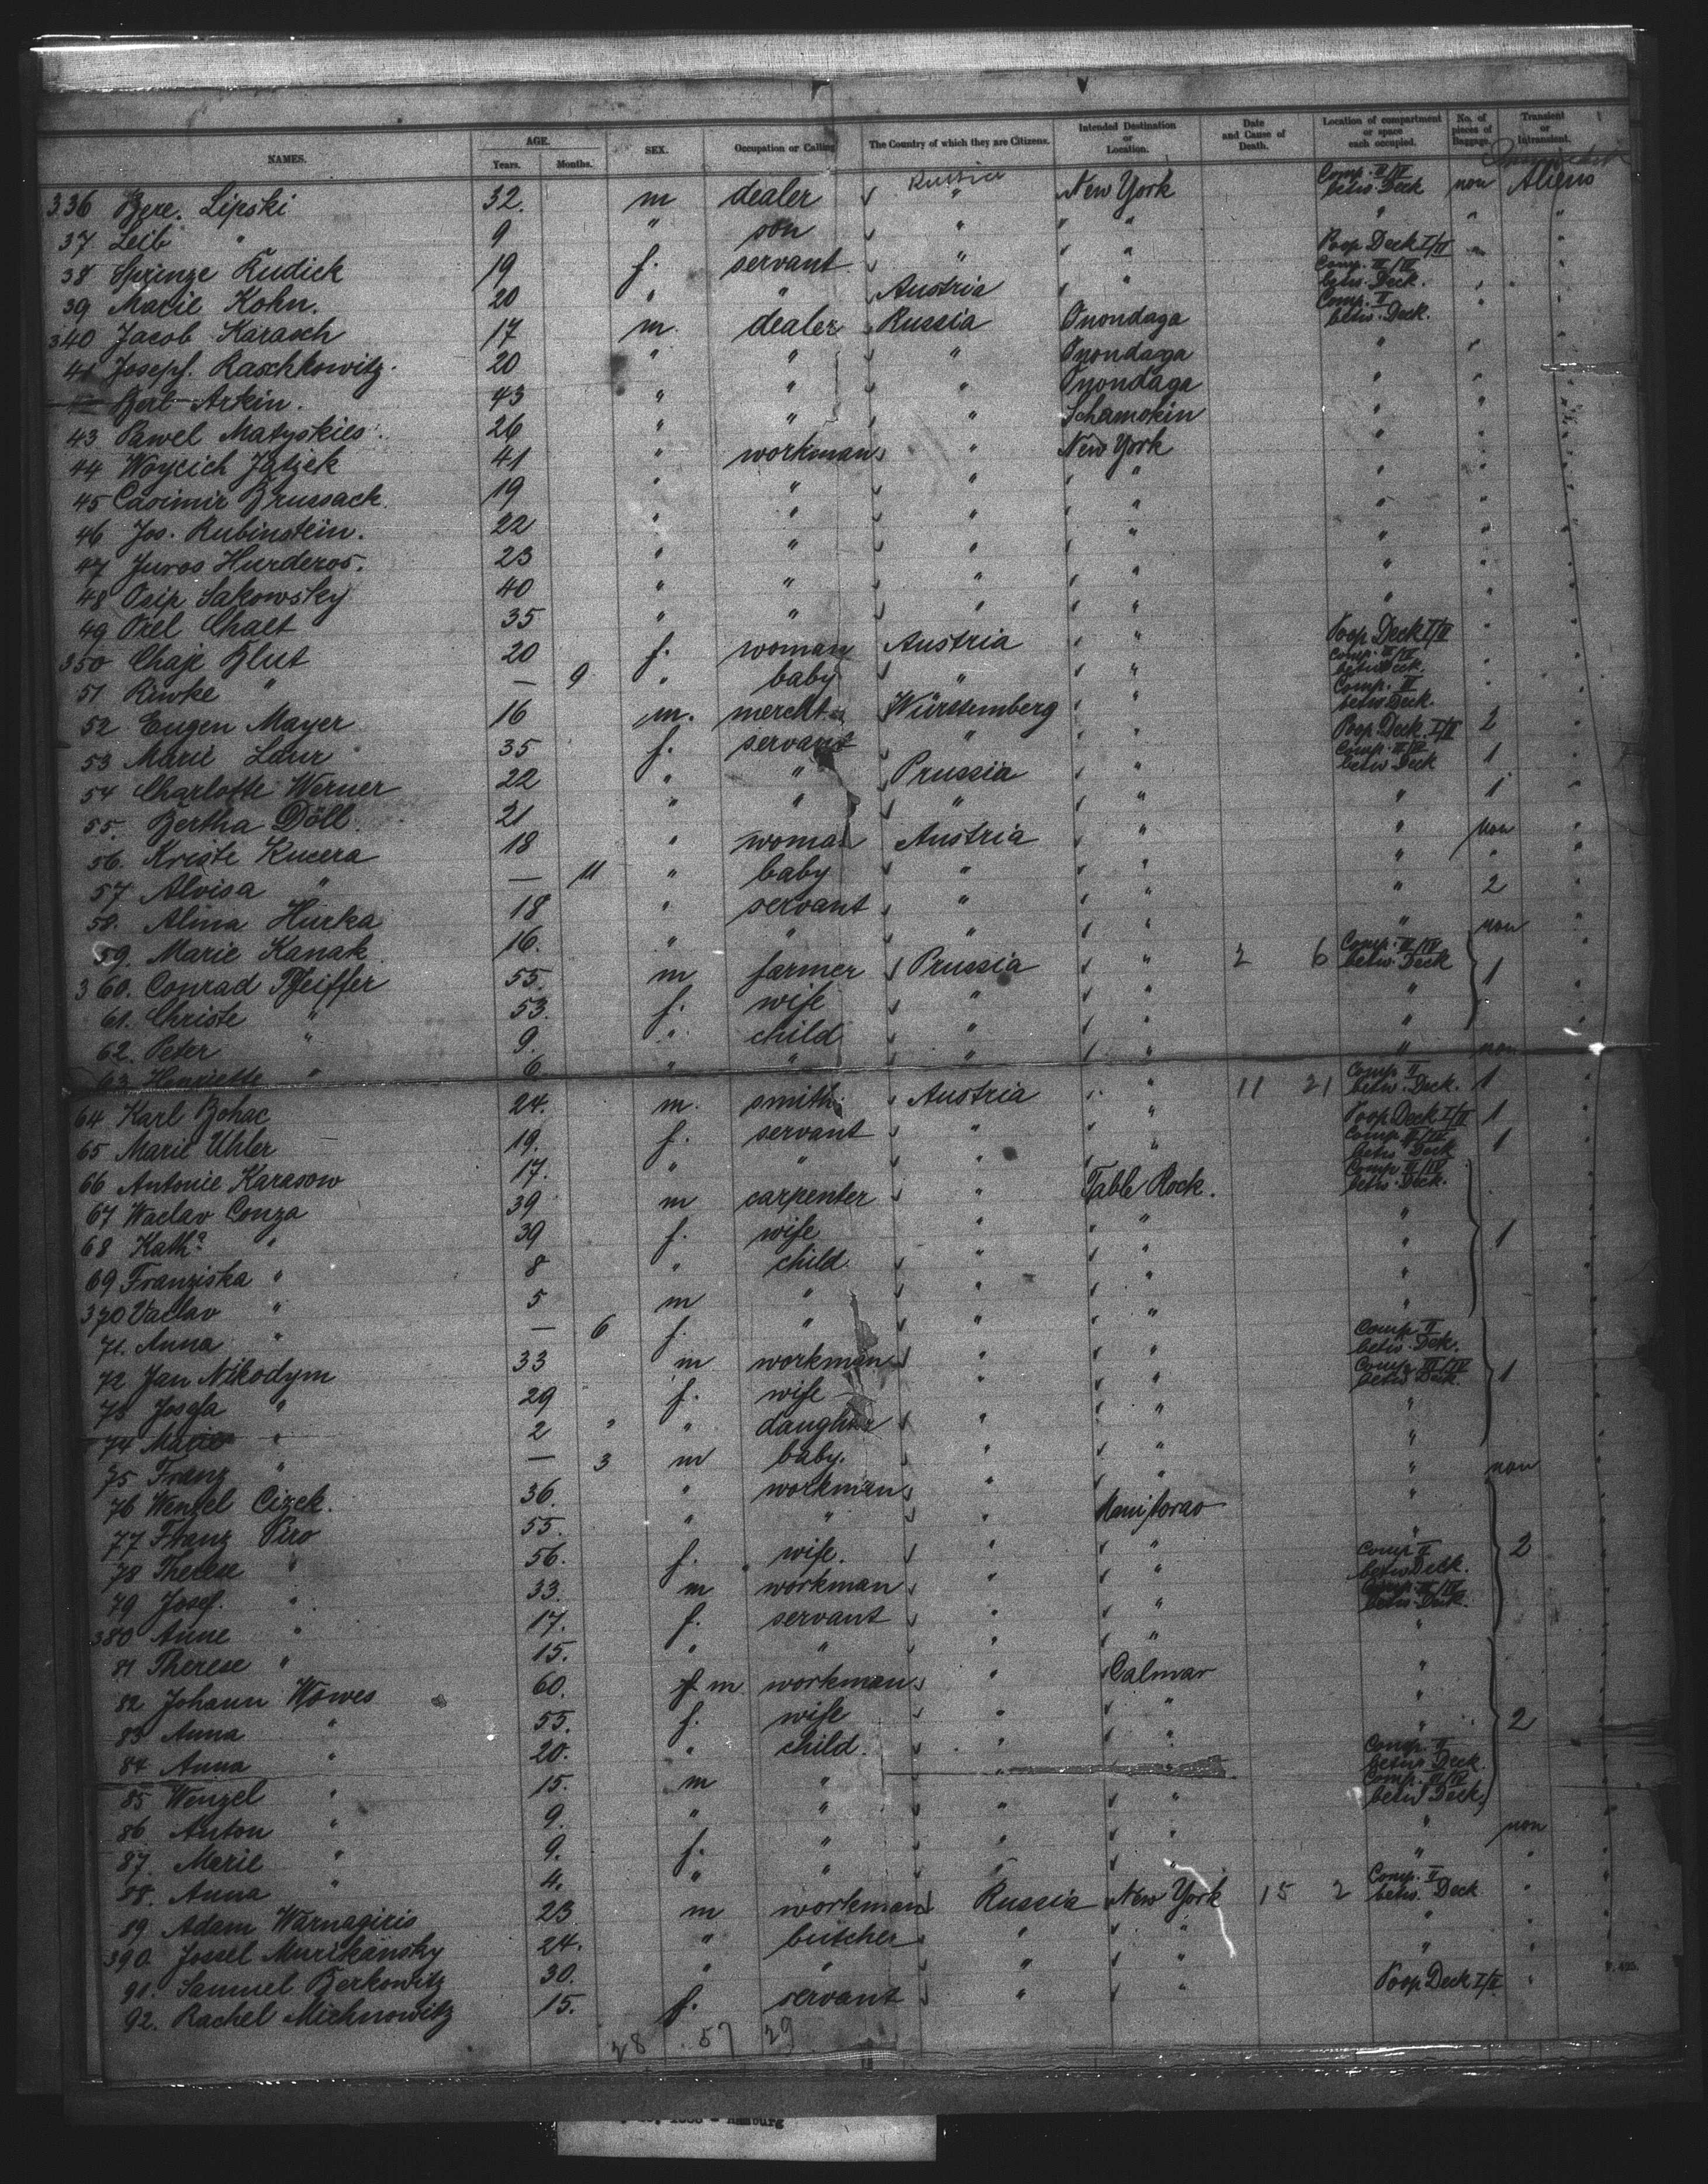 NAMES. AGE. Years. Months. SEX. Occupation or Calling The Country of which they are Citizens. Intended Destination or Location. Date and Cause of Death. Location of compartment or space each occupied. No. of pieces of Baggage. Transient or Intransient.
336 Bere. Lipski 32. m dealer Russia " New York Comp. III/IV betw. Deck non Aliens
37 Leib " 9 " son " " " " " "
38 Sprinze Kudick 19 f. servant " " Poop Deck I/II " "
39 Marie Kohn. 20 " " Austria " Comp. III/IV betw. Deck. " "
340 Jacob Karasch 17 m. dealer Russia Onondaga Comp. II betw. Deck. "
41 Josepf. Raschkowitz. 20 " " " Onondaga " " "
Berl Arkin. 43 " " " Onondaga " " "
43 Pawel Matyskies. 26 " " " Schamokin " " "
44 Woycich Jatzek 41 " workman " New York " " "
45 Casimir Brussack. 19 " " " " " " "
46 Jos. Rubinstein. 22 " " " " " " "
47 Juros Hurderos. 23 " " " " " " "
48 Osip Sakowsky 40 " " " " " " "
49 Orel Chaet 35 " " " " " " "
350 Chaje Blut 20 f. woman Austria " Poop Deck I/II " "
51 Riwke " — 9 " baby " " Comp. III/IV betw. Deck. " "
52 Eugen Mayer 16 m. mercht. Württemberg " Comp. II betw. Deck. "
53 Marie Laur 35 f. servant " " Poop Deck. I/II 2 "
54 Charlotte Werner 22 " " Prussia " Comp. III/IV betw. Deck 1 "
55. Bertha Döll. 21 " " " " " 1 "
56. Kriste Kucera 18 " woman Austria " " non "
57 Aloisa " — 11 " baby " " " " "
58. Alina Hurka 18 " servant " " " 2 "
59. Marie Kanak. 16. " " " " " non "
360. Conrad Pfeiffer 55. m farmer Prussia " 2 6 Comp. III/IV betw. Deck 1 "
61. Christe " 53. f. wife " " " "
62. Peter " 9. " child " " "
63 Henriette " 6 " " " " " non
64 Karl Bohac 24. m. smith. Austria " 11 21 Comp II betw. Deck. 1 "
65 Marie Uhler 19. f. servant " " Poop Deck I/II 1 "
66 Antonie Karasow 17. " " " " Comp III/IV betw Deck 1 "
67 Waclav Conza 39 m carpenter " Table Rock. Comp III/IV betw. Deck.
68 Kath.a " 39 f. wife " " " 1
69 Franziska " 8 " child " " "
370 Vaclav " 5 m " " " "
71. Anna " — 6 f. " " " "
72 Jan Nikodym 33 m workman " " Comp. II betw. Deck. 1
73 Josefa " 29 f. wife " " Comp. III/IV betw. Deck.
74 Marie " 2 " " daughter " " "
75 Franz " — 3 m baby. " " "
76 Wenzel Cizek. 36. " workman " " " non
77 Franz Piro 55. " " " "
78 Therese " 56. f. wife. " " " 2
79 Josef. " 33. m workman " " Comp II betw Deck.
380 Anne " 17. f. servant " " Comp. III/IV betw. Deck.
81 Therese " 15. " " " " "
82 Johann Wowes 60. f m workman " Calmar "
83 Anna " 55. f. wife " " " 2
84 Anna " 20. " child. " " "
85 Wenzel " 15. m " " " Comp. II betw. Deck.
86 Anton " 9. " " " " Comp. III/IV betw Deck.
87. Marie " 9. f. " " " " non
88. Anna " 4. " " " " "
89 Adam Warnagiris 23 m workman Russia New York 15 2 Comp. II betw. Deck "
390. Jossel Murikansky 24. " butcher " " " "
91. Samuel Berkowitz 30. " " " " " "
92. Rachel Michnowitz 15. f. servant " " Poop Deck I/II "
28 57 29
1888 - Hamburg